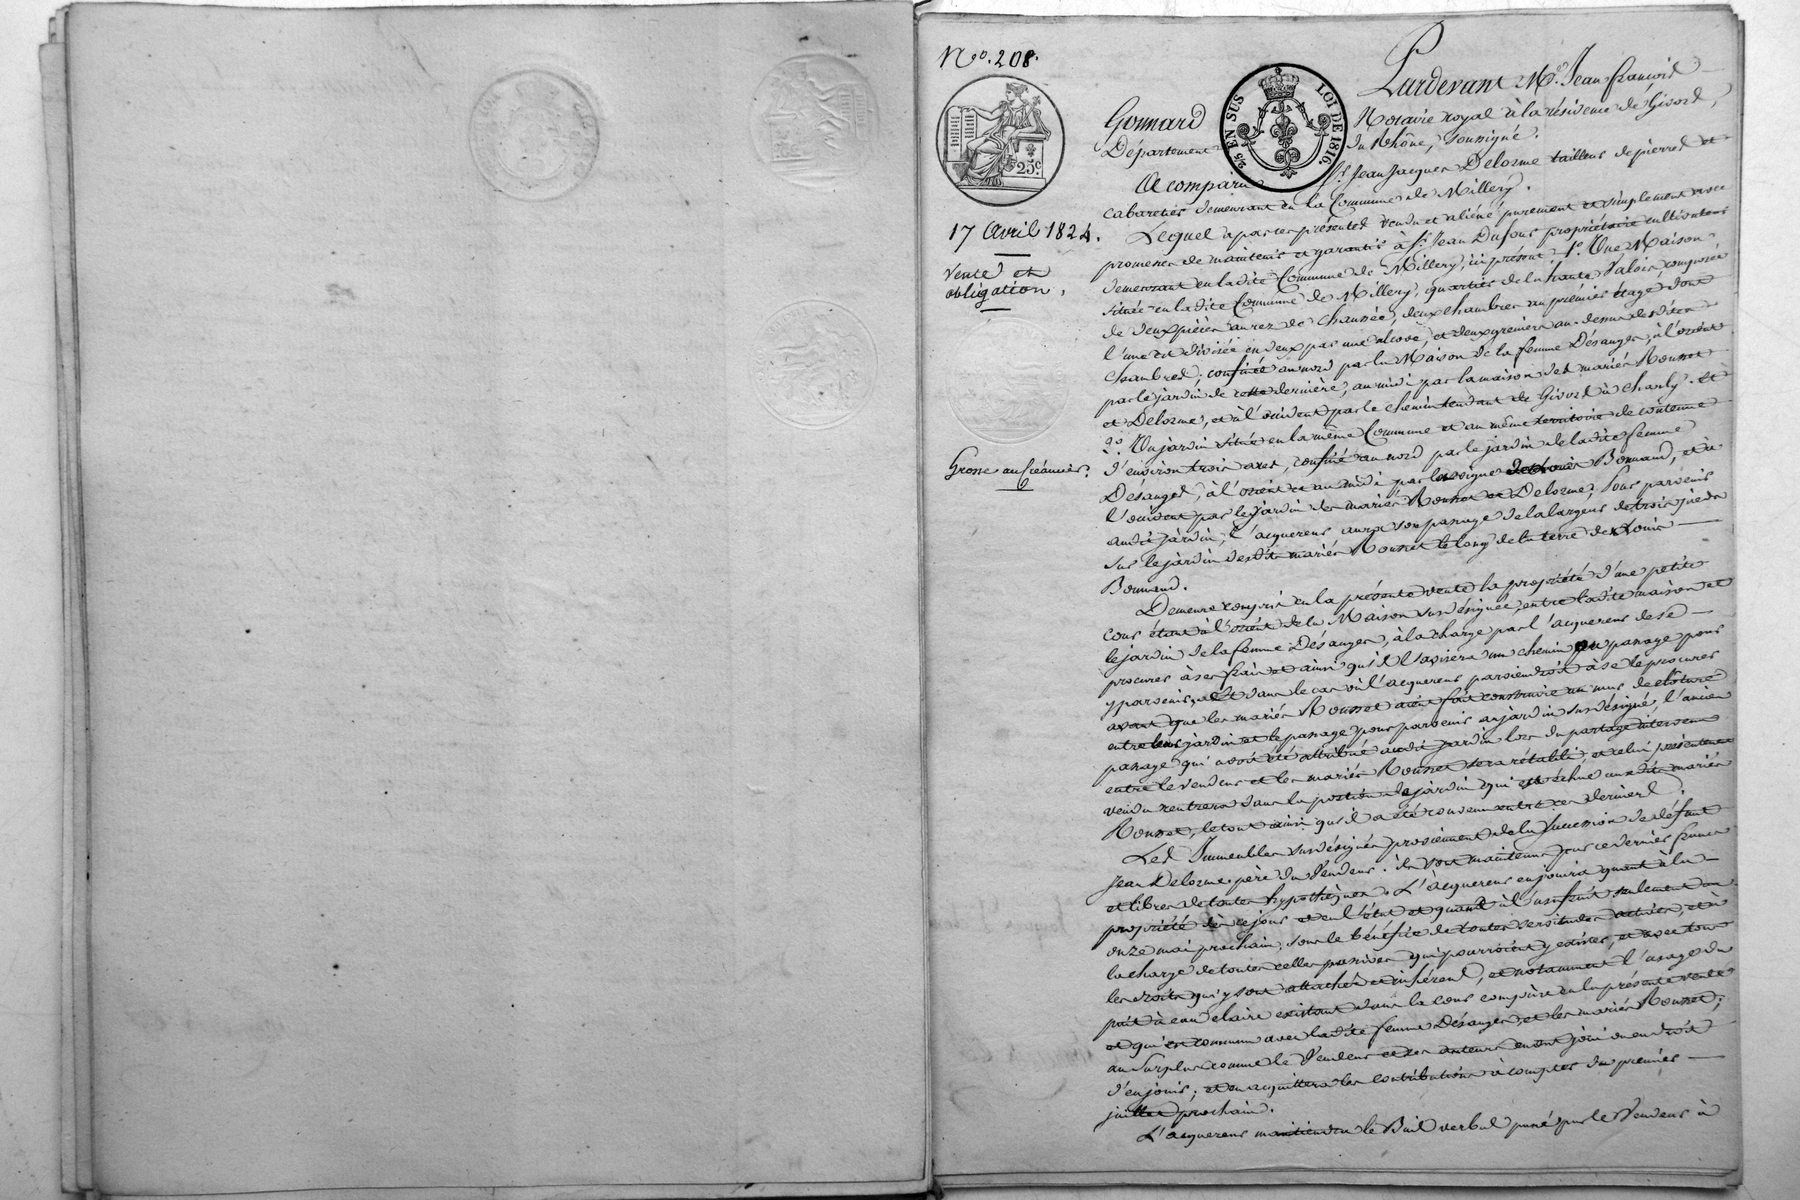 N.º 208.
25 c.
25 EN SUS LOI DE 1816.
17 Avril 1824.
Vente et
obligation.
Grosse au Créancier.
Pardevant M.e Jean françois
Gonnard Notaire royal à la résidence de Givord,
Département du Rhône, soussigné:
A comparu S.r Jean Jacques Delorme tailleur de pierres et
cabaretier demeurant en la Commune de Millery.
Lequel a par ces présentes vendu et aliéné purement et simplement avec
promesse de maintenir et garantir à S.r Jean Dufour propriétaire cultivateur
demeurant en ladite Commune de Millery, ici présent: 1.º Une Maison
située en ladite Commune de Millery, quartier de la haute Valois, composée
de deux pièces au rez de chaussée, deux chambres au premier étage dont
l'une est divisée en deux par une alcove, et deux greniers au-dessus desdites
chambres; confinée au nord par la Maison de la femme Désanges, à l'orient
par le jardin de cette dernière, au midi par la maison des mariés Rousset
et Delorme, et à l'occident par le chemin tendant de Givord à Charly. Et
2.º Un jardin situé en la même Commune et au même territoire de contenue
d'environ trois ares, confiné au nord par le jardin de ladite femme
Désanges, à l'orient et au midi par la vigne de Louis Bonnand, et à
l'occident par le jardin des mariés Rousset et Delorme; Pour parvenir
audit jardin, l'acquéreur aura son passage de la largeur de trois pieds
sur le jardin desdits mariés Rousset le long de la terre de Louis
Bonnand.
Demeure compris en la présente vente la propriété d'une petite
cour étant à l'orient de la Maison susdésignée, entre ladite maison et
le jardin de la femme Désanges, à la charge par l'acquéreur de se
procurer à ses frais et ainsi qu'il l'avisera un chemin ou passage pour
y parvenir, Et dans le cas où l'acquéreur parviendroit à se le procurer
avant que les mariés Rousset aient fait construire un mur de clôture
entre leur jardin et le passage pour parvenir au jardin susdésigné, l'ancien
passage qui avoit été attribué audit jardin lors du partage intervenu
entre le vendeur et les mariés Rousset sera rétabli, et celui présentement
vendu rentrera dans la portion de jardin qui est échue auxdits mariés
Rousset, le tout ainsi qu'il a été convenu entre ces derniers.
Les Immeubles susdésignés proviennent de la succession de défunt
Jean Delorme père du Vendeur: ils sont maintenus par ce dernier francs
et libres de toutes hypothèques. L'acquéreur en jouira quant à la
propriété dès ce jour et en l'état et quant à l'usufruit seulement au
onze mai prochain, sous le bénéfice de toutes servitudes actives, et à
la charge de toutes celles passives qui pourroient y exister, et avec tous
les droits qui y sont attachés et inhérens, et notamment l'usage du
puit à eau claire existant dans la cour comprise en la présente vente
et qui est commun avec ladite femme Désanges, et les mariés Rousset;
au surplus comme le Vendeur et ses auteurs en ont joui ou eu droit
d'en jouir; et en acquittera les contributions à compter du premier
juillet prochain.
L'acquéreur maintiendra le Bail verbal passé par le Vendeur à